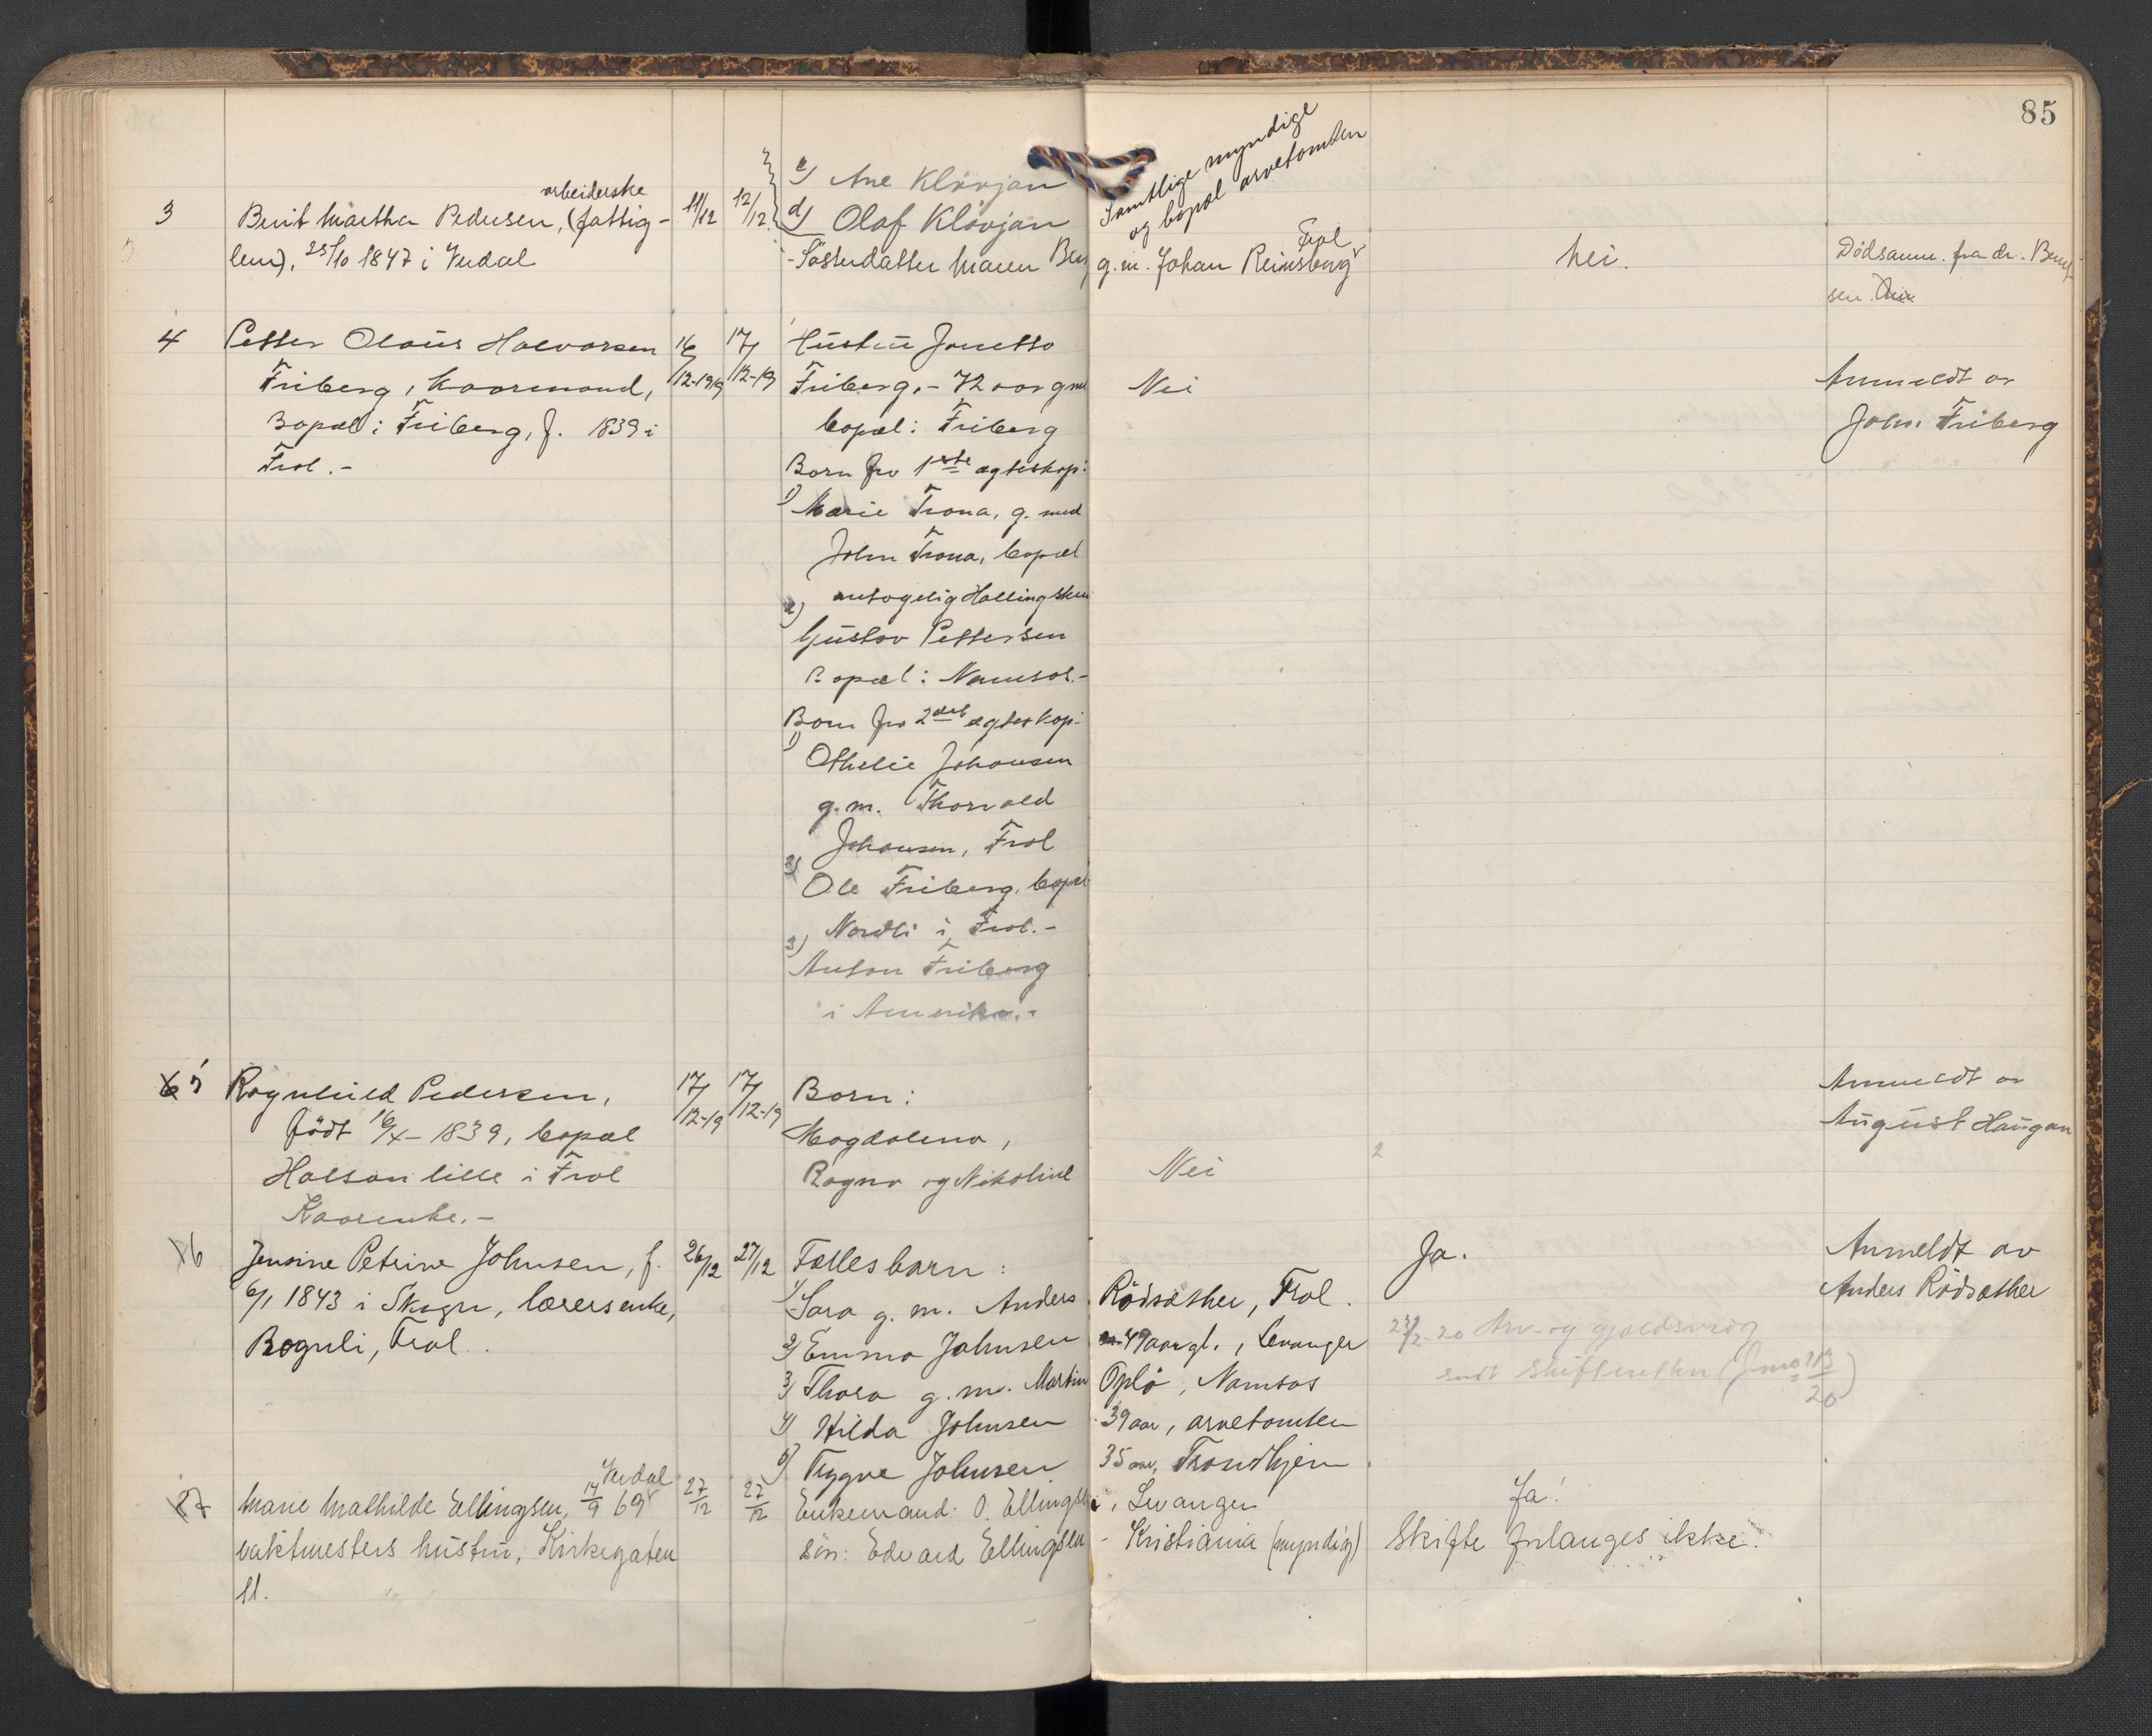 85
c) Ane Klövjan
Samtlige myndige
og bopæl arvetomten
3 arbeiderske
Berit Martha Pedersen, (fattig- 11/12 12/12 d) Olaf Klövjan
lem), 25/10 1847 i Verdal - Søsterdatter Maren g.m. Johan Reinsberg Frol Nei. Dödsanm. fra dr. Bernt-
sen.
4 Petter Olaus Halvorsen 16/12-1919 17/12-19 Hustru Janetta
Friberg, kaarmand, Friberg, - 72 aar gml Nei Anmeldt av
Bopæl: Friberg, f. 1839 i bopæl: Friberg John Friberg
Frol. - Barn fra 1ste ægteskap:
1) Marie Trona, g. med
John Trona, bopæl
antagelig Hallingskn
2) Gustav Pettersen
Bopæl: Namsos. -
Barn fra 2det ægteskap:
1) Othelie Johansen
g.m. Thorvald
Johansen, Frol
2) Ole Friberg, bopæl
Nordli i Frol. -
3) Anton Friberg
i Amerika. -
5 Ragnhild Pedersen, 17/12-19 17/12-19 Barn: Anmeldt av
född 16/X - 1839, bopæl Magdalena, August Haugan
Halsan lille i Frol Ragna og Nikoline Nei 2
Kaarenke. -
6 Jensine Petrine Johnsen, f. 26/12 27/12 Fællesbarn: Ja. Anmeldt av
6/1 1843 i Skogn, lærersenke, 1) Sara g.m. Anders Rödsæther, Frol. Anders Rödsæther
Boguli, Frol. 2) Emma Johnsen 49 aar gl., Levanger 23/2-20 Arv- og gjeldsvedg
3) Thora g.m. Martin Oplö, Namsos sendt skifteretten
4) Hilda Johnsen 39 aar, arvetomten
5) Tryggve Johnsen 35 aar, Trondhjem
7 Marie Mathilde Ellingsen, 14/9 69 Verdal 27/12 27/12 Enkemand: O. Ellingsen, Levanger Ja!
vaktmesters hustru, Kirkegaten sön: Edvard Ellingsen - Kristiania (myndig) Skifte forlanges ikke.
11.